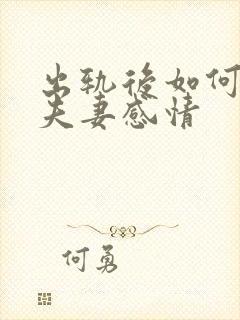 出轨後如何
夫妻感情
何勇